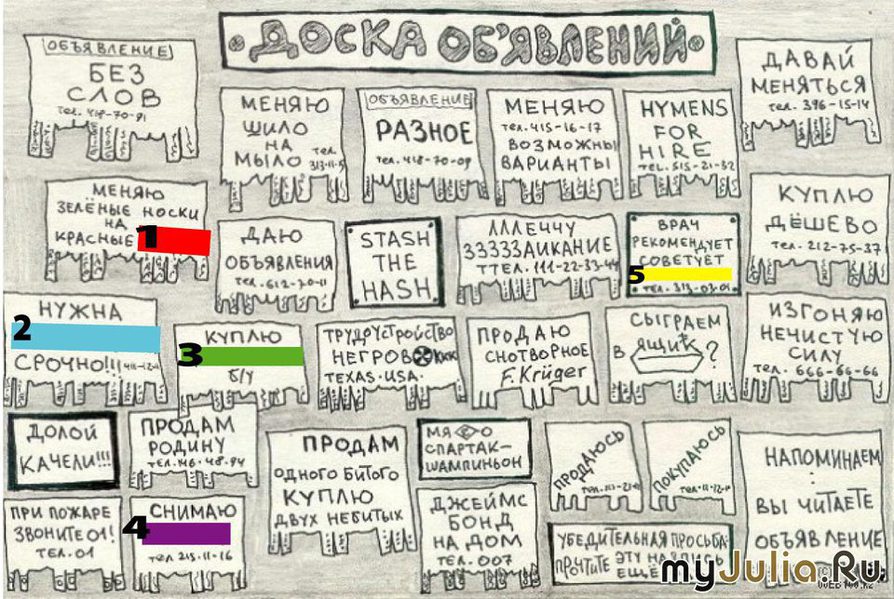 ДОСКА ОБЪЯВЛЕНИЙ
ОБЪЯВЛЕНИЕ
БЕЗ
СЛОВ
тел. 418-70-91
МЕНЯЮ
ШИЛО
НА
МЫЛО тел.
ОБЪЯВЛЕНИЕ
РАЗНОЕ
тел. 418-70-09
МЕНЯЮ
тел. 415-16-17
ВОЗМОЖНЫ
ВАРИАНТЫ
HYMENS
FOR
HIRE
TEL. 515-21-32
ДАВАЙ
МЕНЯТЬСЯ
тел. 396-15-14
МЕНЯЮ
ЗЕЛЁНЫЕ НОСКИ
НА
КРАСНЫЕ 1
ДАЮ
ОБЪЯВЛЕНИЯ
тел. 612-70-11
STASH
THE
HASH
ЛЛЛЕЧЧУ
ЗЗЗЗЗАИКАНИЕ
ТТЕЛ. 111-22-33-44
ВРАЧ
РЕКОМЕНДУЕТ
СОВЕТУЕТ
5
ТЕЛ. 313-03-01
КУПЛЮ
ДЁШЕВО
тел. 212-75-37
НУЖНА
2
СРОЧНО!!!
КУПЛЮ
3
Б/У
ТРУДОУСТРОЙСТВО
НЕГРОВ ККК
TEXAS·USA.
ПРОДАЮ
СНОТВОРНОЕ
F. Krüger
СЫГРАЕМ
В ЯЩИК ?
ИЗГОНЯЮ
НЕЧИСТУЮ
СИЛУ
тел. 666-66-66
ДОЛОЙ
КАЧЕЛИ!!!
ПРОДАМ
РОДИНУ
ТЕЛ. 146-48-94
ПРОДАМ
ОДНОГО БИТОГО
КУПЛЮ
ДВУХ НЕБИТЫХ
МЯСО
СПАРТАК–
ШАМПИНЬОН
ПРОДАЮСЬ
ПОКУПАЮСЬ
НАПОМИНАЕМ:
ВЫ ЧИТАЕТЕ
ОБЪЯВЛЕНИЕ
ПРИ ПОЖАРЕ
ЗВОНИТЕ 01!
ТЕЛ. 01
СНИМАЮ
4
тел 215-11-16
ДЖЕЙМС
БОНД
НА ДОМ
ТЕЛ. 007
УБЕДИТЕЛЬНАЯ ПРОСЬБА:
ПРОЧТИТЕ ЭТУ НАДПИСЬ
ЕЩЁ
myJulia.Ru